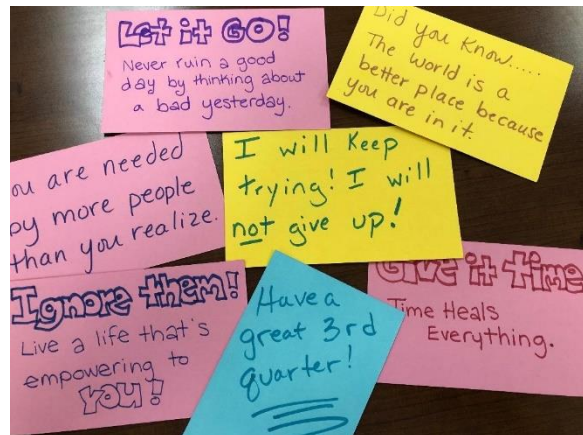 Let it GO!
Never ruin a good
day by thinking about
a bad yesterday.
Did you know.....
The world is a
better place because
you are in it.
ou are needed
by more people
than you realize.
I will keep
trying! I will
not give up!
Ignore them!
Live a life that's
empowering to
YOU!
Have a
great 3rd
quarter!
Give it time
Time Heals
Everything.